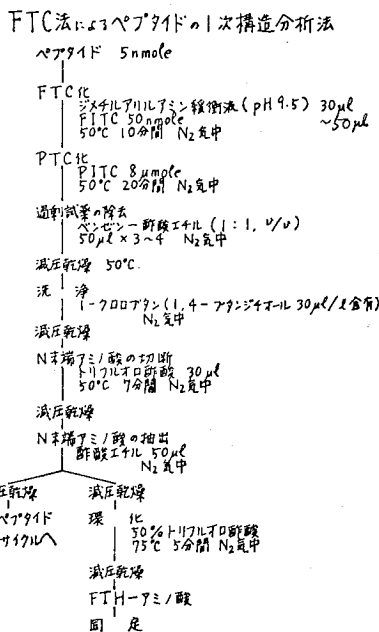 FTC法によるペプタイドの1次構造分析法
ペプタイド 5nmole
FTC化
ジメチルアリルアミン緩衝液(pH9.5) 30μl
~50μl
FITC 50nmole
50℃ 10分間 N₂気中
PTC化
PITC 8μmole
50℃ 20分間 N₂気中
過剰試薬の除去
ベンゼン-酢酸エチル(1:1, v/v)
50μl×3~4 N₂気中
減圧乾燥 50℃.
洗浄
1-クロロブタン(1,4-ブタンジチオール 30μl/l含有)
N₂気中
減圧乾燥
N末端アミノ酸の切断
トリフルオロ酢酸 30μl
50℃ 7分間 N₂気中
減圧乾燥
N末端アミノ酸の抽出
酢酸エチル 50μl
N₂気中
圧乾燥 減圧乾燥
ペプタイド 環化
サイクルへ 50%トリフルオロ酢酸
75℃ 5分間 N₂気中
減圧乾燥
FTH-アミノ酸
同定